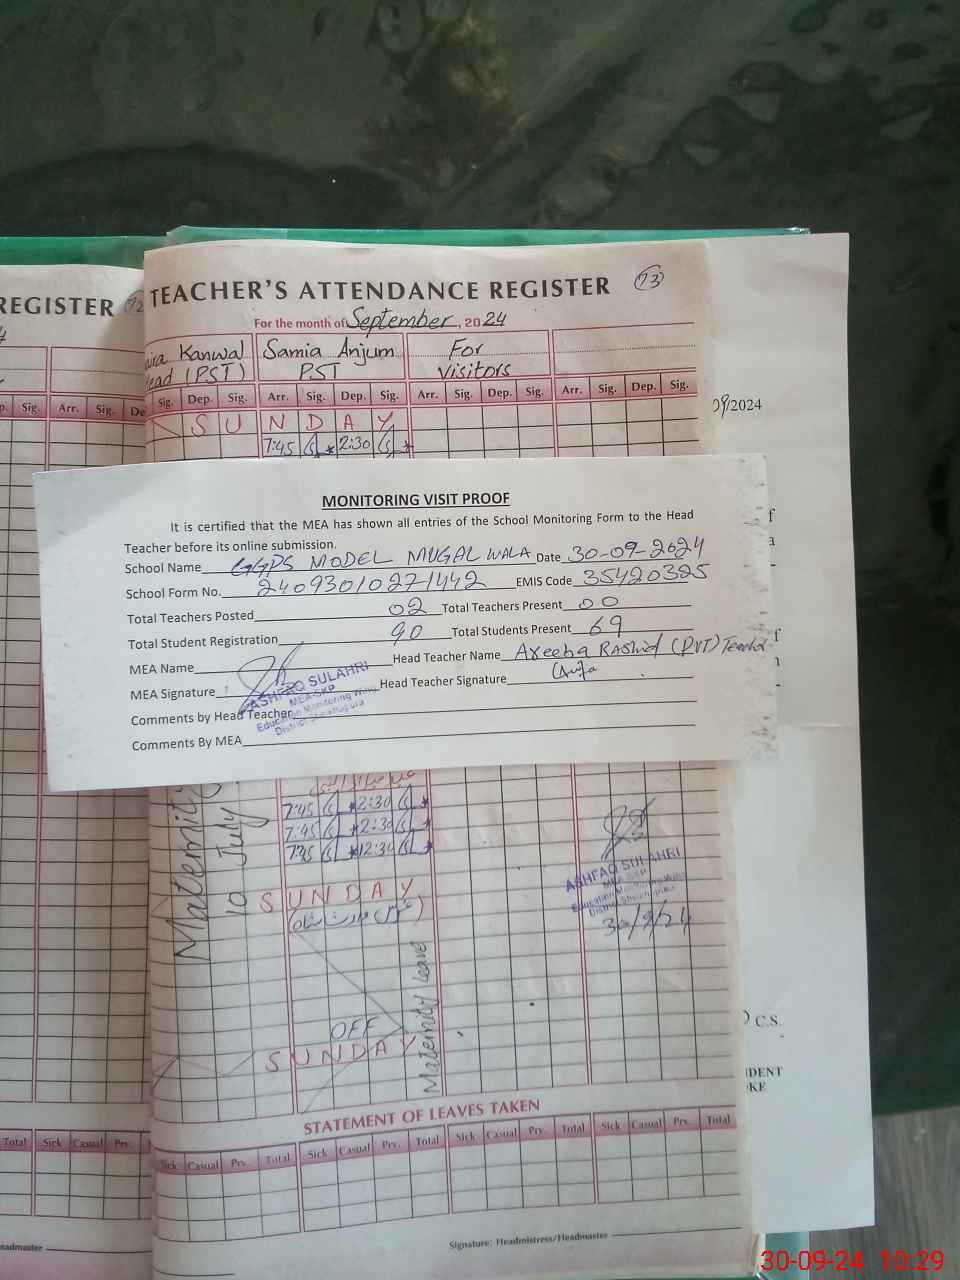 REGISTER 72
TEACHER'S ATTENDANCE REGISTER 73
For the month of September, 2024
Kanwal Samia Anjum For
(PST) PST Visitors
Sig. Arr. Sig. De
Sig. Dep. Sig. Arr. Sig. Dep. Sig. Arr. Sig. Dep. Sig. Arr. Sig. Dep. Sig.
SUNDAY
7:45 2:30
09/2024
MONITORING VISIT PROOF
It is certified that the MEA has shown all entries of the School Monitoring Form to the Head
Teacher before its online submission.
School Name GGPS MODEL MUGALWALA Date 30-09-2024
School Form No. 24093010271442 EMIS Code 35420325
Total Teachers Posted 02 Total Teachers Present 00
Total Student Registration 90 Total Students Present 69
MEA Name Head Teacher Name Areeba Rashid (PVT) Teacher
MEA Signature Head Teacher Signature
ASHFAQ SULAHRI
MEA-SKP
Education Monitoring Wing
District Sheikhupura
Comments by Head Teacher
Comments By MEA
7:45 2:30
7:45 2:30
7:45 12:30
Maternity
10 July
SUNDAY
ASHFAQ SULAHRI
MEA-SKP
Education Monitoring Wing
District Sheikhupura
30/9/24
Maternity leave
OFF
SUNDAY
C.S.
DENT
KE
STATEMENT OF LEAVES TAKEN
Total Sick Casual Prv.
Sick Casual Prv. Total Sick Casual Prv. Total Sick Casual Prv. Total Sick Casual Prv. Total
Signature: Headmistress/Headmaster
30-09-24 10:29